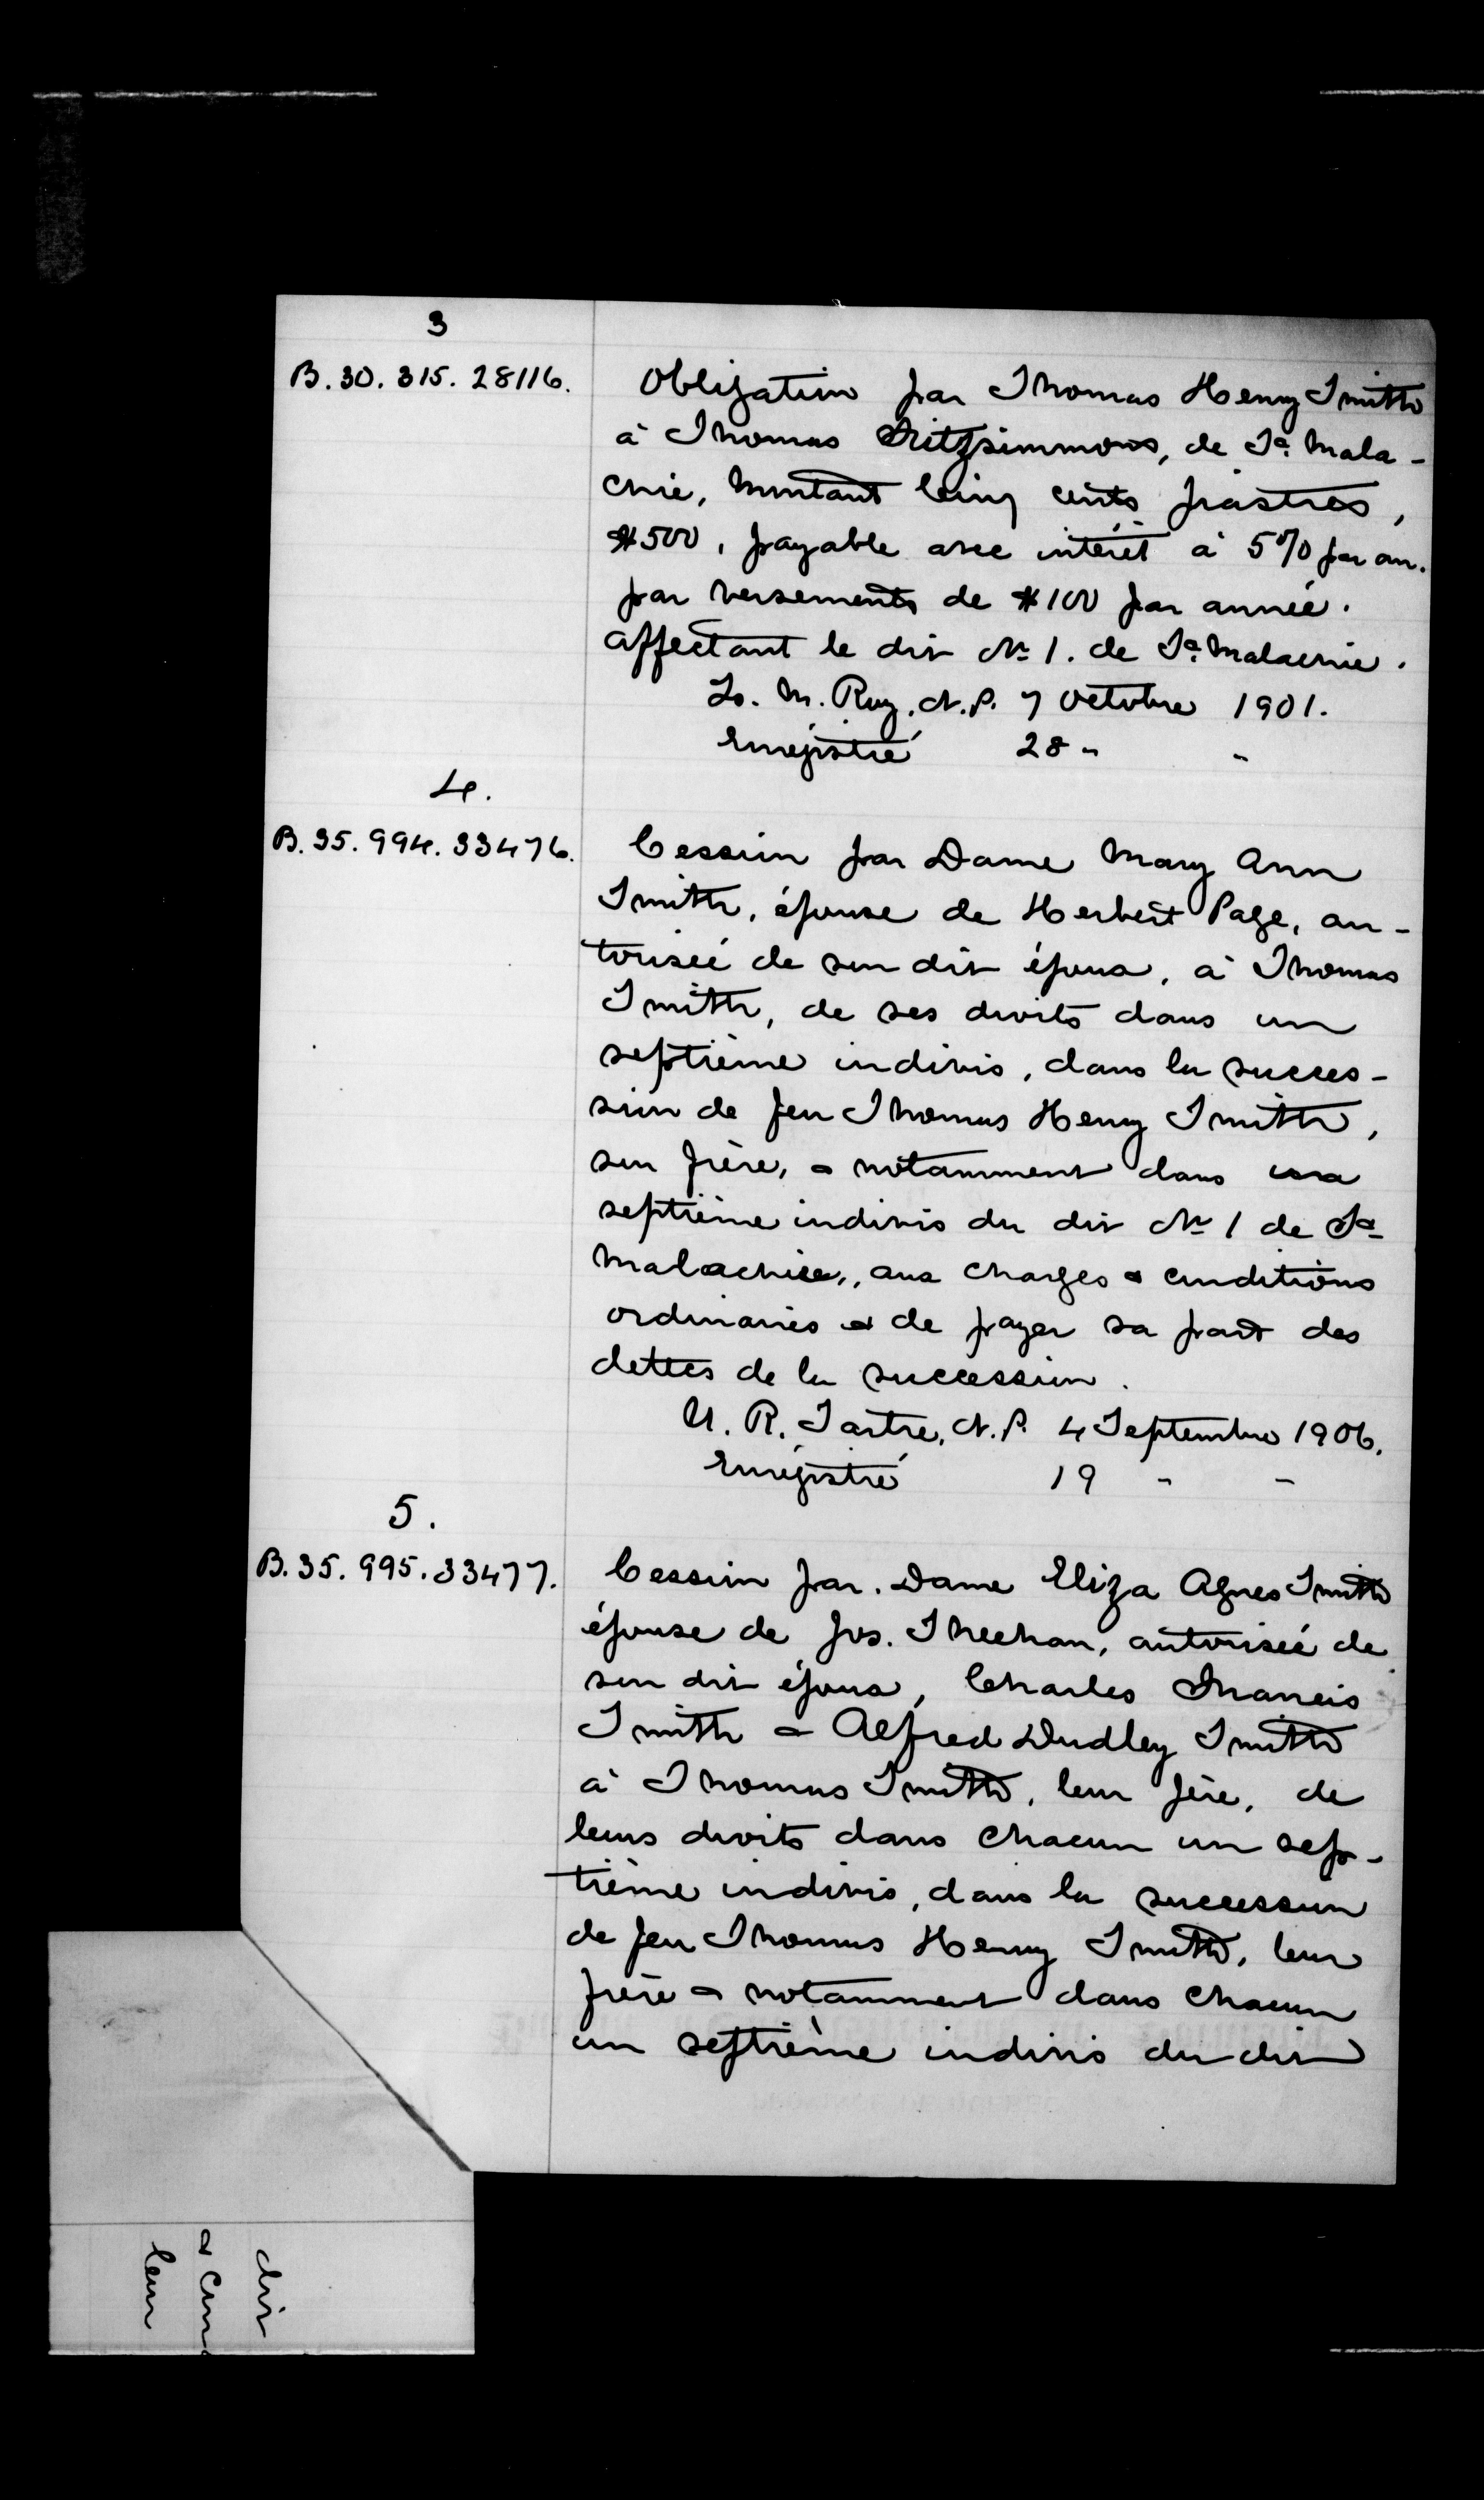 3
B. 30. 315. 28116.
Obligation par Thomas Henry Smith
à Thomas Fitzsimmons, de St Mala-
chie, Montant Cinq cents piastres,
$500, payable avec intérêt à 5% par an.
par versements de $100 par année.
affectant le dit No 1. de St Malachie.
Ls. M. Roy, N.P. 7 Octobre 1901.
Enregistré 28 " "
4.
B. 35. 994. 33476.
Cession par Dame Mary Ann
Smith, épouse de Herbert Page, au-
torisée de son dit époux, à Thomas
Smith, de ses droits dans un
septième indivis, dans la succes-
sion de feu Thomas Henry Smith,
son frère, & notamment dans un
septième indivis du dit No 1 de St
Malachie, aux charges & conditions
ordinaires & de payer sa part des
dettes de la succession.
U. R. Tartre, N.P. 4 Septembre 1906.
Enregistré 19 " "
5.
B. 35. 995. 33477.
Cession par. Dame Eliza Agnes Smith
épouse de Jos. Sheehan, autorisée de
son dit époux, Charles Francis
Smith & Alfred Dudley Smith
à Thomas Smith, leur père, de
leurs droits dans chacun un sep-
tième indivis, dans la succession
de feu Thomas Henry Smith, leur
frère & notamment dans chacun
un septième indivis du dit
dit
& con
leur